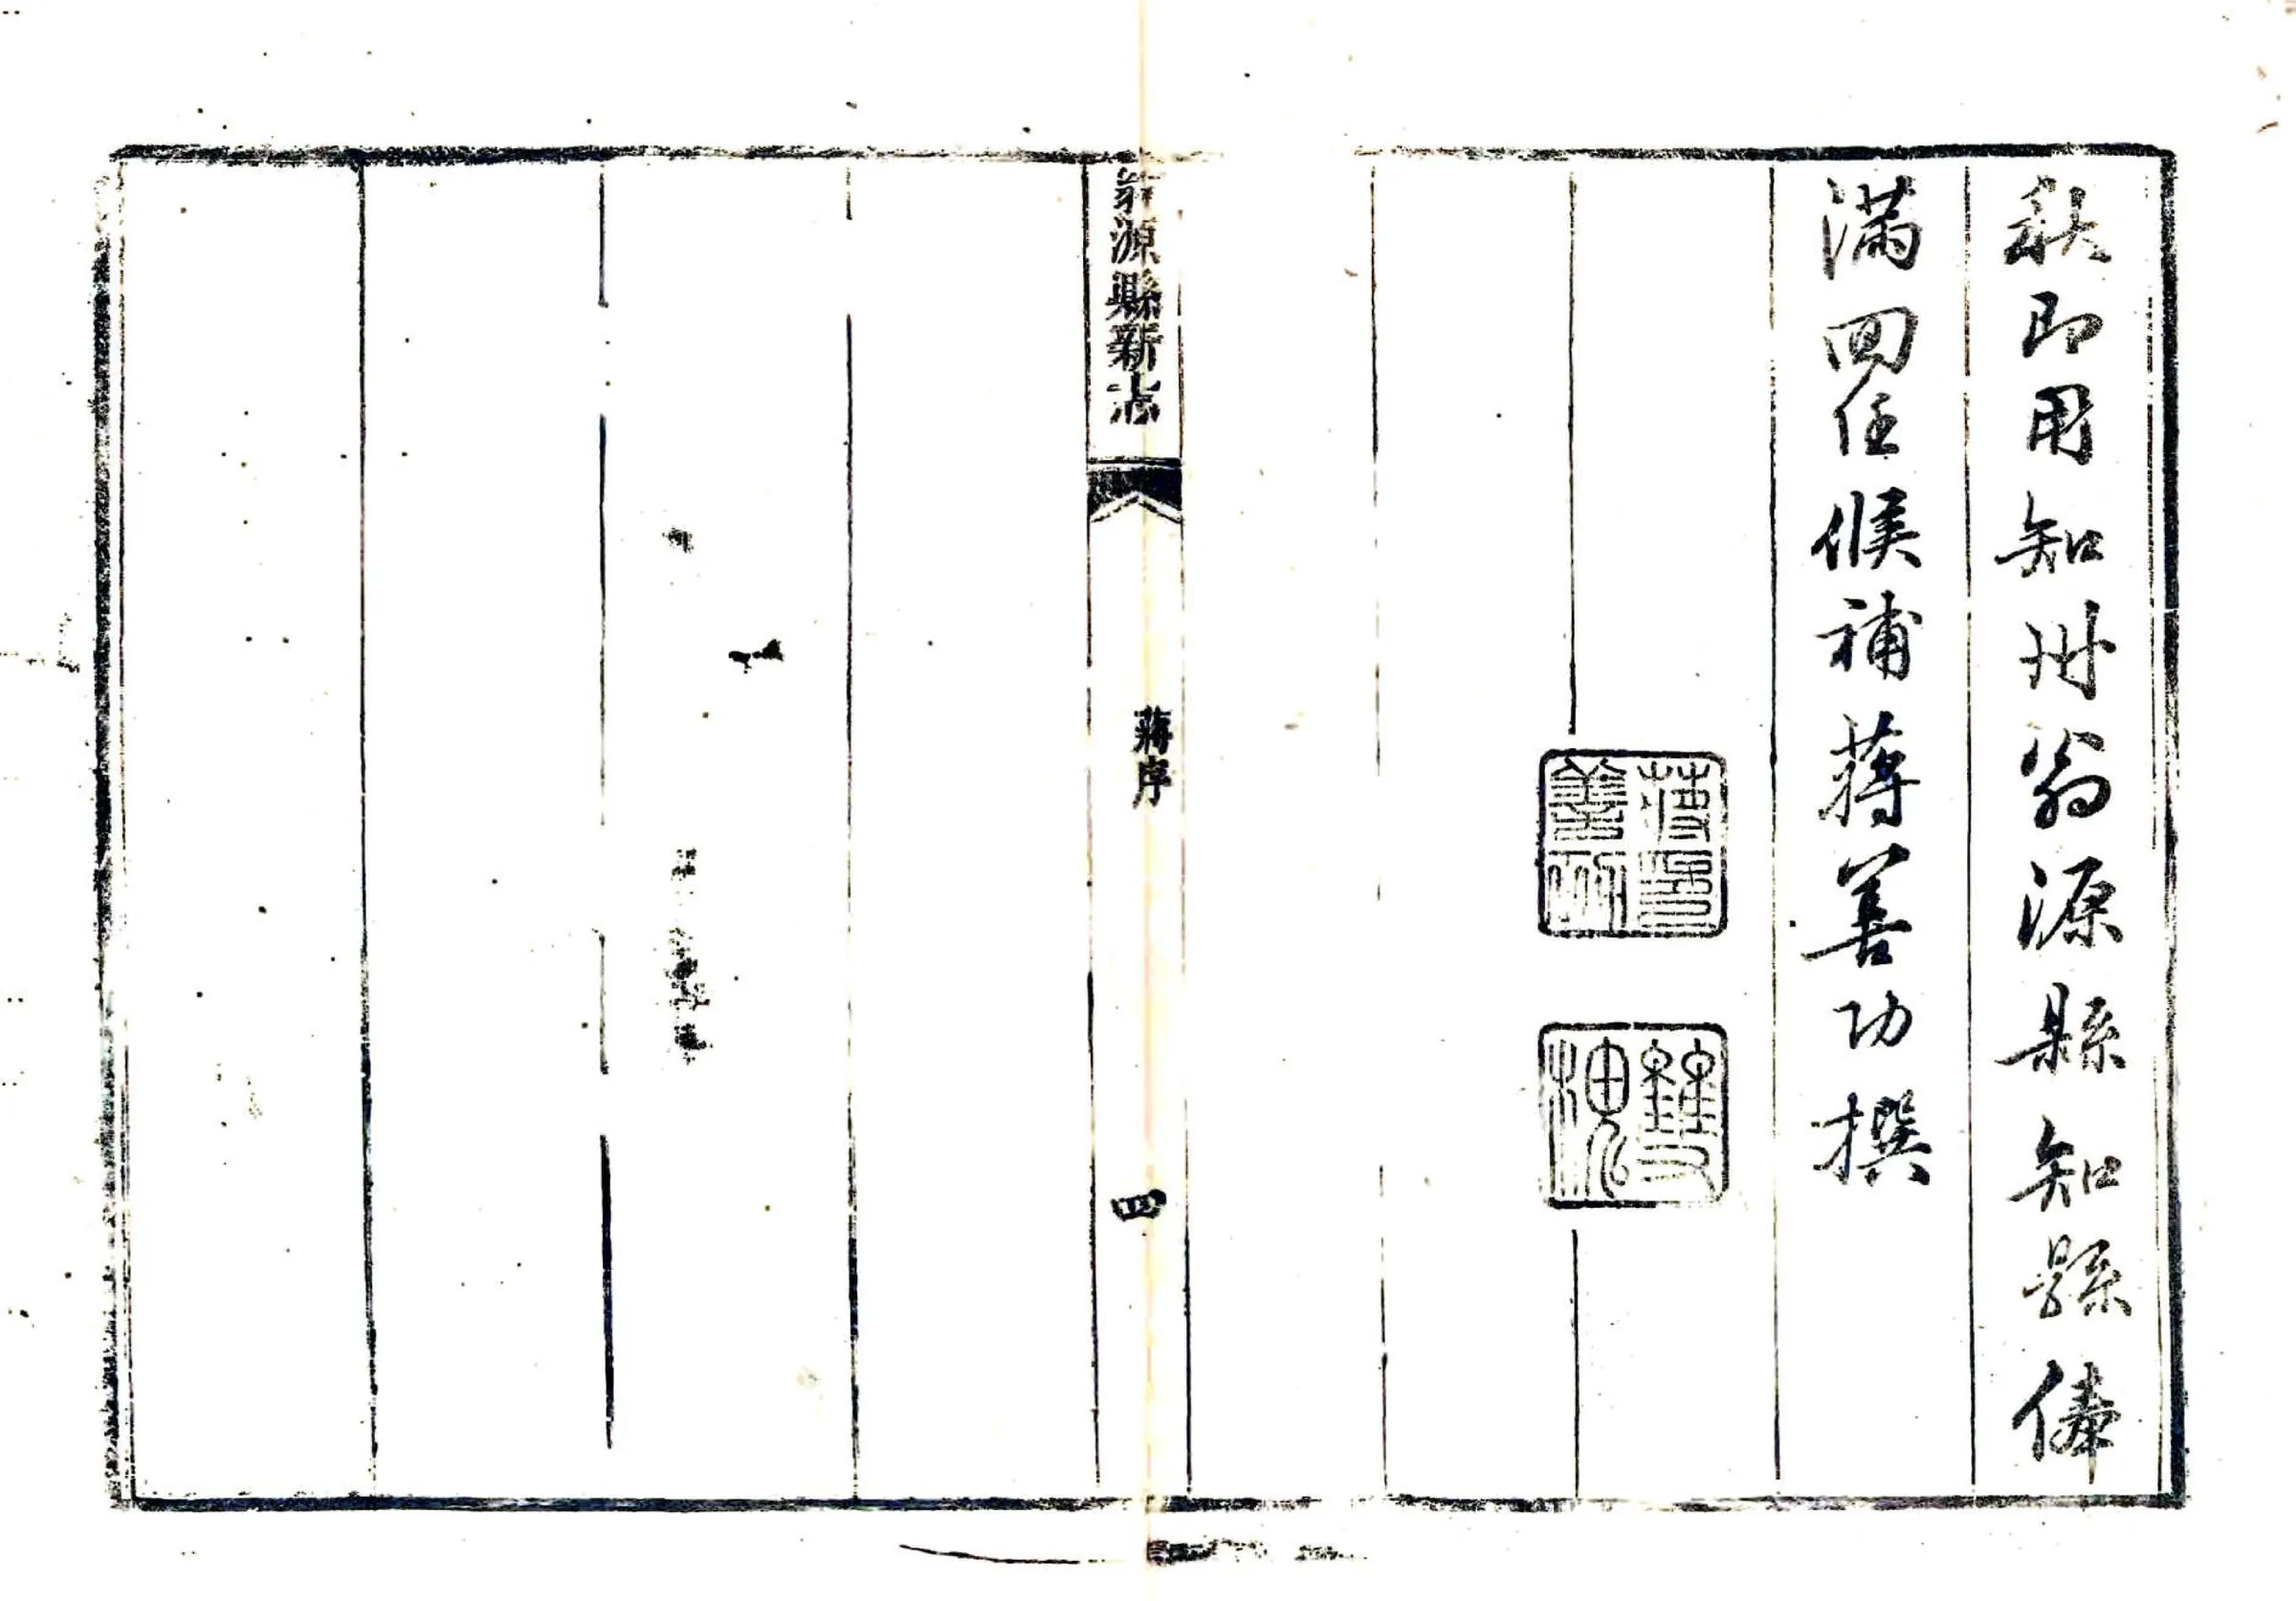 秋即用知州翁源縣知縣俸
滿回任候補蔣善功撰
翁源縣新志
蔣序
四